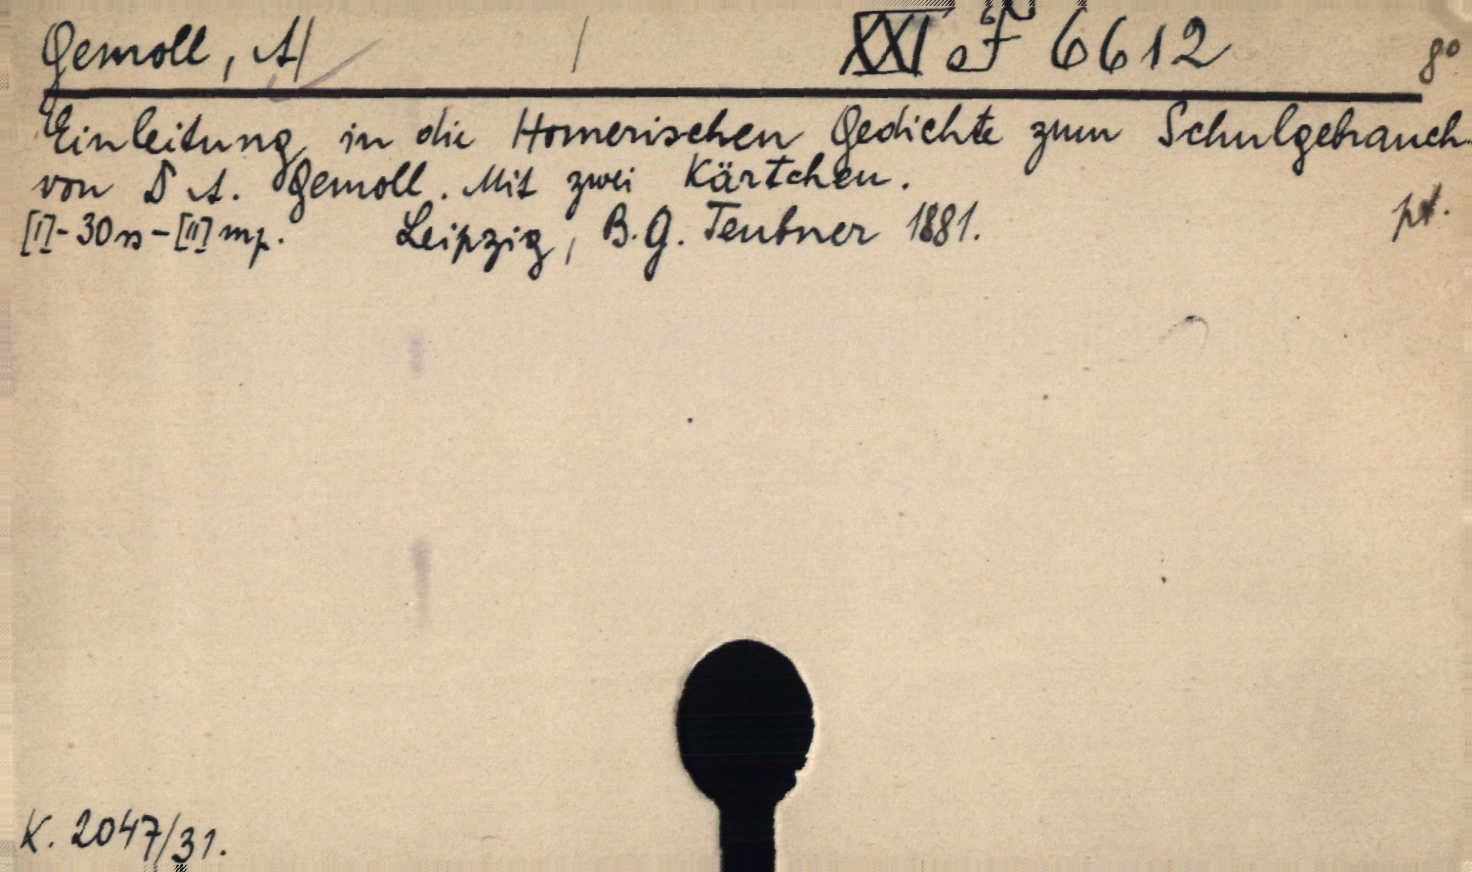 Gemoll, A / XXI F 6612 8°
Einleitung in die Homerischen Gedichte zum Schulgebrauch
von D A. Gemoll. Mit zwei Kärtchen.
[I]-30 ss-[II] mp. Leipzig, B.G. Teubner 1881. pł.
K. 2047/31.